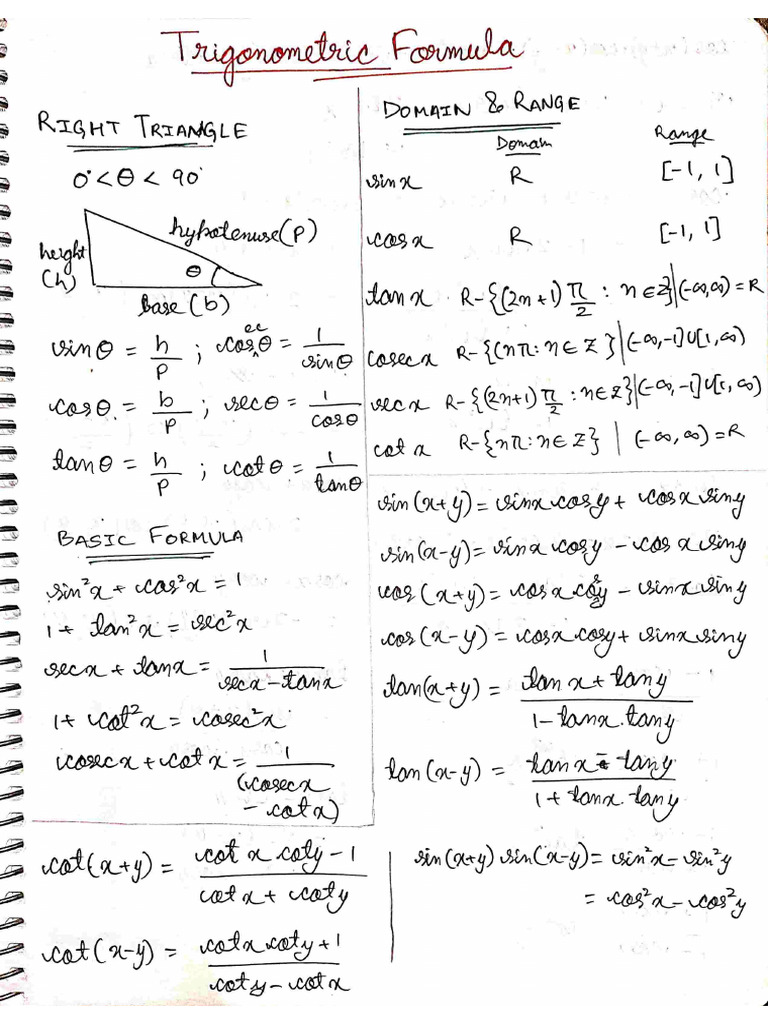 Trigonometric Formula
RIGHT TRIANGLE
0° < θ < 90°
height (h)
hypotenuse (p)
θ
base (b)
sinθ = h/p ; cosecθ = 1/sinθ
cosθ = b/p ; secθ = 1/cosθ
tanθ = h/p ; cotθ = 1/tanθ
BASIC FORMULA
sin²x + cos²x = 1
1 + tan²x = sec²x
secx + tanx = 1/(secx - tanx)
1 + cot²x = cosec²x
cosecx + cotx = 1/(cosecx - cotx)
DOMAIN & RANGE
Domain Range
sinx R [-1, 1]
cosx R [-1, 1]
tanx R-{(2n+1)π/2 : n∈Z} | (-∞,∞) = R
cosecx R-{(nπ : n∈Z} | (-∞,-1]U[1,∞)
secx R-{(2n+1)π/2 : n∈Z} | (-∞,-1]U[1,∞)
cotx R-{nπ : n∈Z} | (-∞,∞) = R
sin(x+y) = sinx cosy + cosx siny
sin(x-y) = sinx cosy - cosx siny
cos(x+y) = cosx cosy - sinx siny
cos(x-y) = cosx cosy + sinx siny
tan(x+y) = (tanx + tany)/(1 - tanx.tany)
tan(x-y) = (tanx - tany)/(1 + tanx.tany)
cot(x+y) = (cotx coty - 1)/(cotx + coty)
cot(x-y) = (cotx coty + 1)/(coty - cotx)
sin(x+y) sin(x-y) = sin²x - sin²y
= cos²x - cos²y